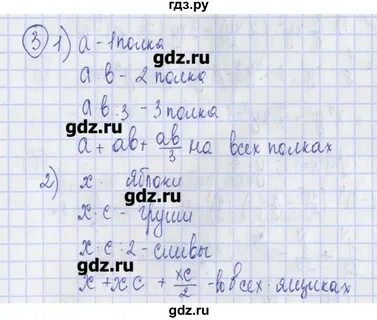 гдз.ру
③ 1) a - 1 полка
gdz.ru
a b - 2 полка
gdz.ru
a b : 3 - 3 полка
gdz.ru
a + ab + ab/3 на всех полках
gdz.ru
2) x · яблоки
gdz.ru
x · c - груши
gdz.ru
x · c : 2 - сливы
gdz.ru
x + xc + xc/2 - во всех ящиках
gdz.ru